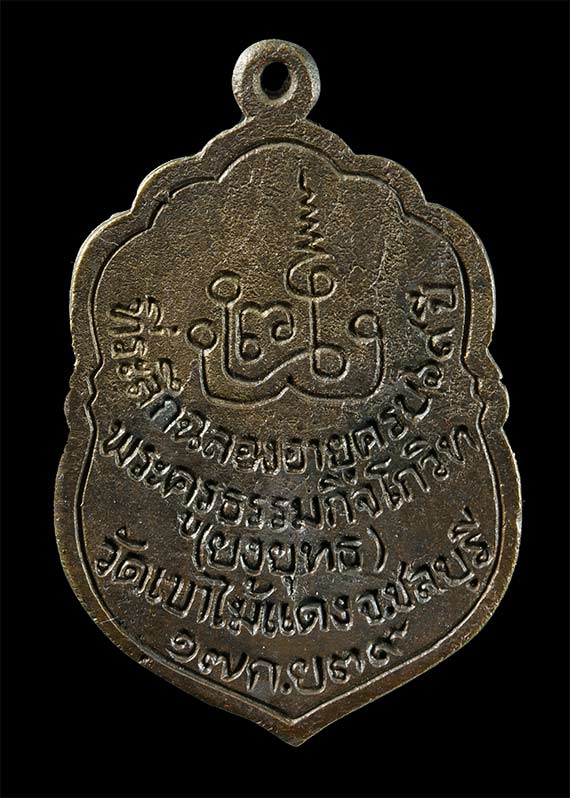 ที่ระลึกฉลองอายุครบ๖๙ปี
พระครูธรรมกิจโกวิท
(ยงยุทธ)
วัดเขาไม้แดงจ.ชลบุรี
๑๗ก.ย๓๙